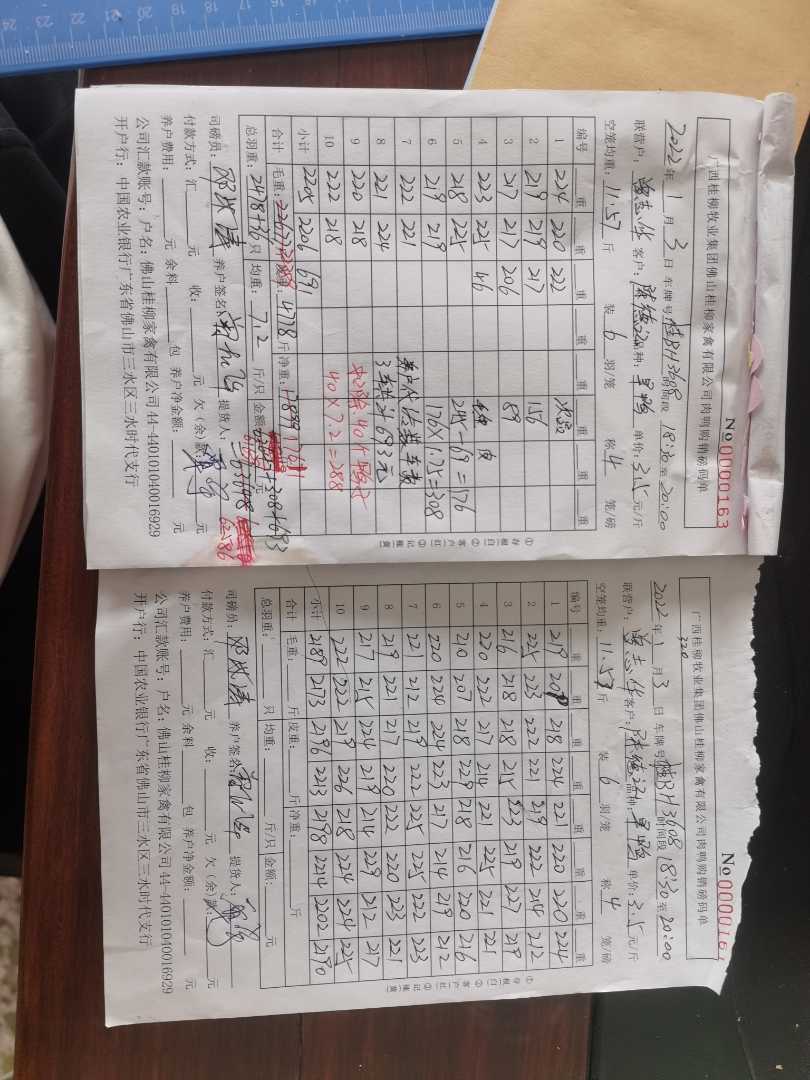 广西桂柳牧业集团佛山桂柳家禽有限公司肉鸭购销磅码单
№0000163
2022年1月3日 车牌号桂BH3608 时间段18:30至20:00
联营户: 客户: 品种: 单价:3.5元/斤
空笼均重:11.57斤 装6羽/笼 称4笼/磅
编号 重 重 重 重 重 重 重
1 224 220 222 次品
2 219 219 217 156
3 217 217 206 89
4 223 225 46
5 218 225 245-69=176
6 219 219 176×1.75=308
7 222 221
8 221 224 3车共计693元
9 220 218
10 222 218 40×7.2=288
小计 2205 2206 691
合计 毛重: 皮重:4778斤 净重:
总羽重: 只 均重:7.2斤/只 金额: 元
司磅员:邓成涛 养户签名: 提货人:
付款方式:汇 元 收: 元 欠(余)款: 元
养户费用: 元 余料 包 养户净金额: 元
公司汇款账号:户名:佛山桂柳家禽有限公司 44-440101040016929
开户行:中国农业银行广东省佛山市三水区三水时代支行
①存根(白) ②客户(红) ③记账(黄)
广西桂柳牧业集团佛山桂柳家禽有限公司肉鸭购销磅码单
№000016
320
2022年1月3日 车牌号桂BH3608 时间段18:30至20:00
联营户: 客户: 品种: 单价:3.5元/斤
空笼均重:11.57斤 装6羽/笼 称4笼/磅
编号 重 重 重 重 重 重 重 重
1 219 209 218 224 221 220 220 224
2 225 223 222 221 219 222 214 212
3 216 218 218 215 223 219 227 219
4 220 222 217 214 221 225 221 221
5 210 207 218 229 218 216 220 216
6 220 224 224 223 217 214 219 212
7 221 212 219 222 225 225 222 223
8 219 221 217 220 222 220 223 221
9 217 215 224 219 214 229 212 217
10 222 222 219 226 218 224 224 225
小计 2189 2173 2196 2213 2198 2214 2202 2190
合计 毛重: 斤 皮重: 斤 净重: 斤
总羽重: 只 均重: 斤/只 金额: 元
司磅员:邓成涛 养户签名: 提货人:
付款方式:汇 元 收: 元 欠(余)款: 元
养户费用: 元 余料 包 养户净金额: 元
公司汇款账号:户名:佛山桂柳家禽有限公司 44-440101040016929
开户行:中国农业银行广东省佛山市三水区三水时代支行
①存根(白) ②客户(红) ③记账(黄)